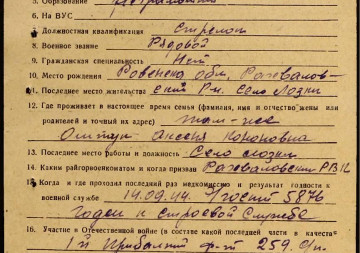 5. Образование
6. На ВУС
7. Должностная квалификация стрелок
8. Военное звание Рядовой
9. Гражданская специальность Нет
10. Место рождения Ровенска обл,
11. Последнее место жительства ский р-н. село Лозки
12. Где проживает в настоящее время семья (фамилия, имя и отчество жены или
родителей и точный их адрес) там-же
Кононовна
13. Последнее место работы и должность Село лозки
14. Каким райгорвоенкоматом и когда призван РВК
15. Когда и где проходил последний раз медкомиссию и результат годности к
военной службе 14.09.44. госпит 5876
годен к строевой службе
16. Участие в Отечественной войне (в составе какой последней части и в качестве
1й Прибалт ф-т 259.